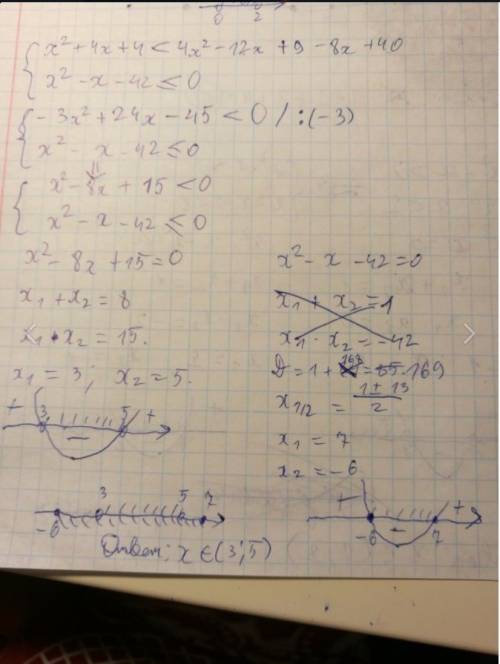 0 2
x² + 4x + 4 < 4x² - 12x + 9 - 8x + 40
x² - x - 42 ≤ 0
-3x² + 24x - 45 < 0 / :(-3)
x² - x - 42 ≤ 0
x² - 8x + 15 < 0
x² - x - 42 ≤ 0
x² - 8x + 15 = 0
x₁ + x₂ = 8
x₁ · x₂ = 15.
x₁ = 3; x₂ = 5.
+ 3 - 5 +
x² - x - 42 = 0
x₁ + x₂ = 1
x₁ · x₂ = -42
D = 1 + 168 = 169
x₁/₂ = 1 ± 13 / 2
x₁ = 7
x₂ = -6
+ -6 - 7 +
-6 3 5 7
Ответ: x ∈ (3; 5)